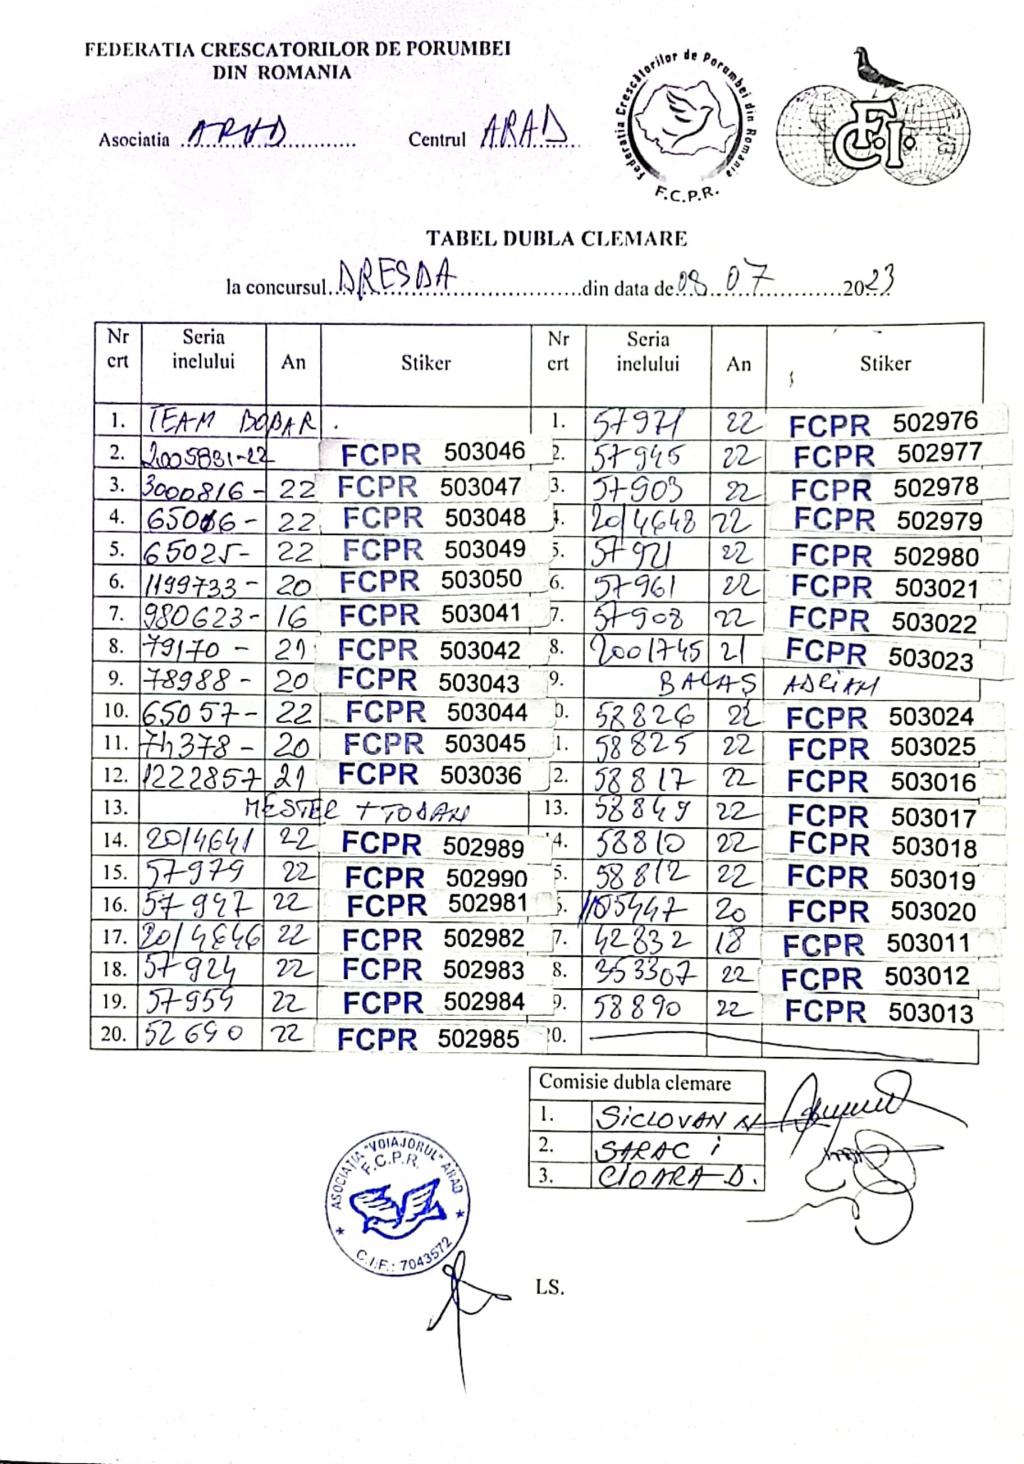 FEDERATIA CRESCATORILOR DE PORUMBEI
DIN ROMANIA
Asociatia ARAD Centrul ARAD
Federatia Crescătorilor de Porumbei din Romania
F.C.P.R.
F.C.I.
TABEL DUBLA CLEMARE
la concursul DRESDA din data de 08 07 2023
Nr crt Seria inelului An Stiker Nr crt Seria inelului An Stiker
1. TEAM BOBAR 1. 57971 22 FCPR 502976
2. 2005831-22 FCPR 503046 2. 57945 22 FCPR 502977
3. 3000816- 22 FCPR 503047 3. 57903 22 FCPR 502978
4. 65016- 22 FCPR 503048 4. 2014648 22 FCPR 502979
5. 65025- 22 FCPR 503049 5. 57921 22 FCPR 502980
6. 1199733- 20 FCPR 503050 6. 57961 22 FCPR 503021
7. 980623- 16 FCPR 503041 7. 57908 22 FCPR 503022
8. 79170 - 21 FCPR 503042 8. 2001745 21 FCPR 503023
9. 78988- 20 FCPR 503043 9. BALAȘ ADRIAN
10. 65057- 22 FCPR 503044 0. 58826 22 FCPR 503024
11. 74378- 20 FCPR 503045 1. 58825 22 FCPR 503025
12. 1222857 21 FCPR 503036 2. 58817 22 FCPR 503016
13. MESTER + TODAN 13. 58849 22 FCPR 503017
14. 2014641 22 FCPR 502989 4. 58810 22 FCPR 503018
15. 57979 22 FCPR 502990 5. 58812 22 FCPR 503019
16. 57947 22 FCPR 502981 6. 1105447 20 FCPR 503020
17. 2014646 22 FCPR 502982 7. 42832 18 FCPR 503011
18. 57924 22 FCPR 502983 8. 353307 22 FCPR 503012
19. 57959 22 FCPR 502984 9. 58890 22 FCPR 503013
20. 52690 22 FCPR 502985 0.
Comisie dubla clemare
1. SICLOVAN N
2. SARAC i
3. CIOARA D.
ASOCIATIA "VOIAJORUL" ARAD
F.C.P.R.
C.I.F.: 7043572
LS.